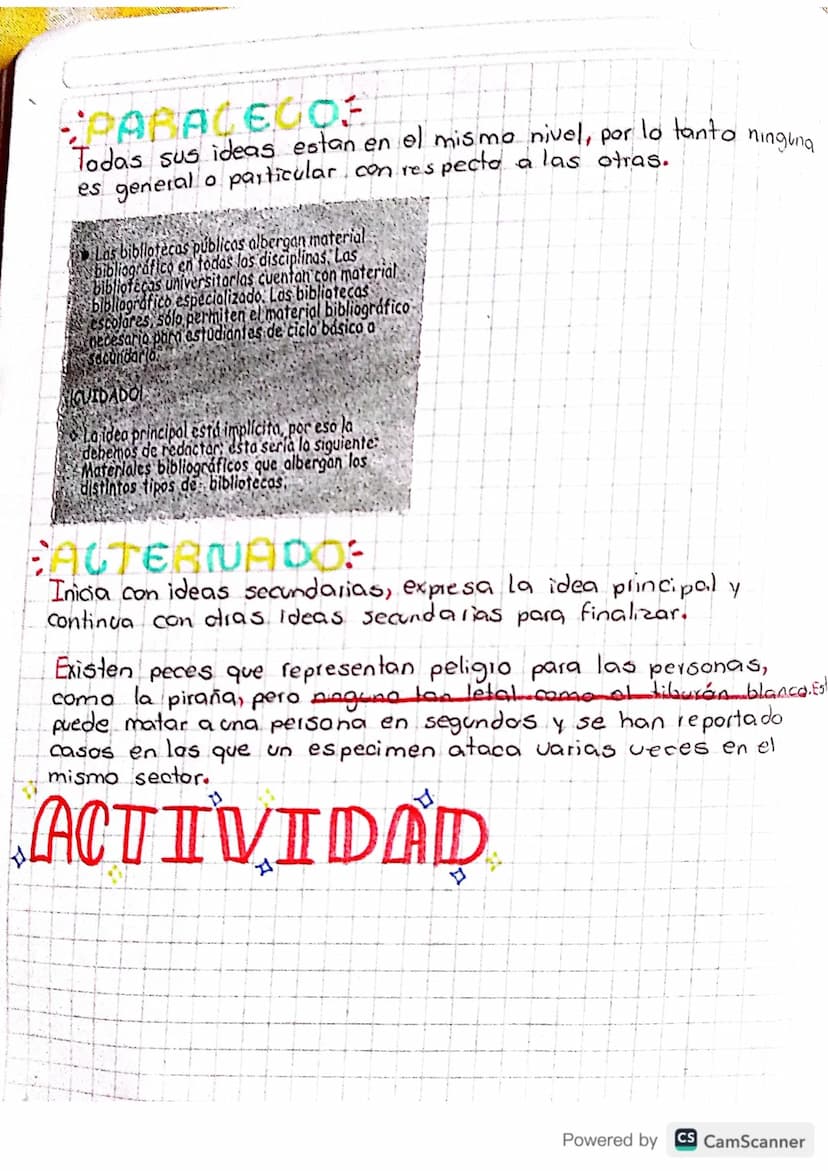 PARALELO
Todas sus ideas estan en el mismo nivel, por lo tanto ninguna
es general o particular con respecto a las otras.
Las bibliotecas públicas albergan material
bibliográfico en todas las disciplinas. Las
bibliotecas universitarias cuentan con material
bibliográfico especializado. Las bibliotecas
escolares, sólo permiten el material bibliográfico
necesario para estudiantes de ciclo básico o
secundario.
¡CUIDADO!
La idea principal está implícita, por eso la
debemos de redactar; ésta sería la siguiente:
Materiales bibliográficos que albergan los
distintos tipos de bibliotecas.
ALTERNADO
Inicia con ideas secundarias, expresa la idea principal y
continua con otras ideas secundarias para finalizar.
Existen peces que representan peligro para las personas,
como la piraña, pero ninguno tan letal como el tiburón blanco. Est
puede matar a una persona en segundos y se han reportado
casos en los que un especimen ataca varias veces en el
mismo sector.
ACTIVIDAD
Powered by CS CamScanner